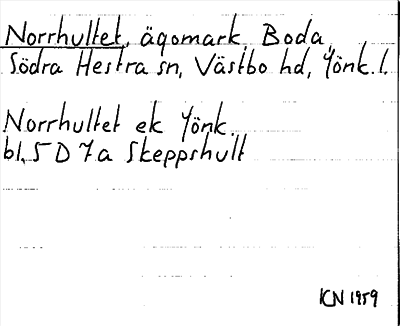 Norrhultet, ägomark, Boda,
Södra Hestra sn, Västbo hd, Jönk. l.
Norrhultet ek Jönk.
bl. 5 D 7a Skeppshult
ICN 1959